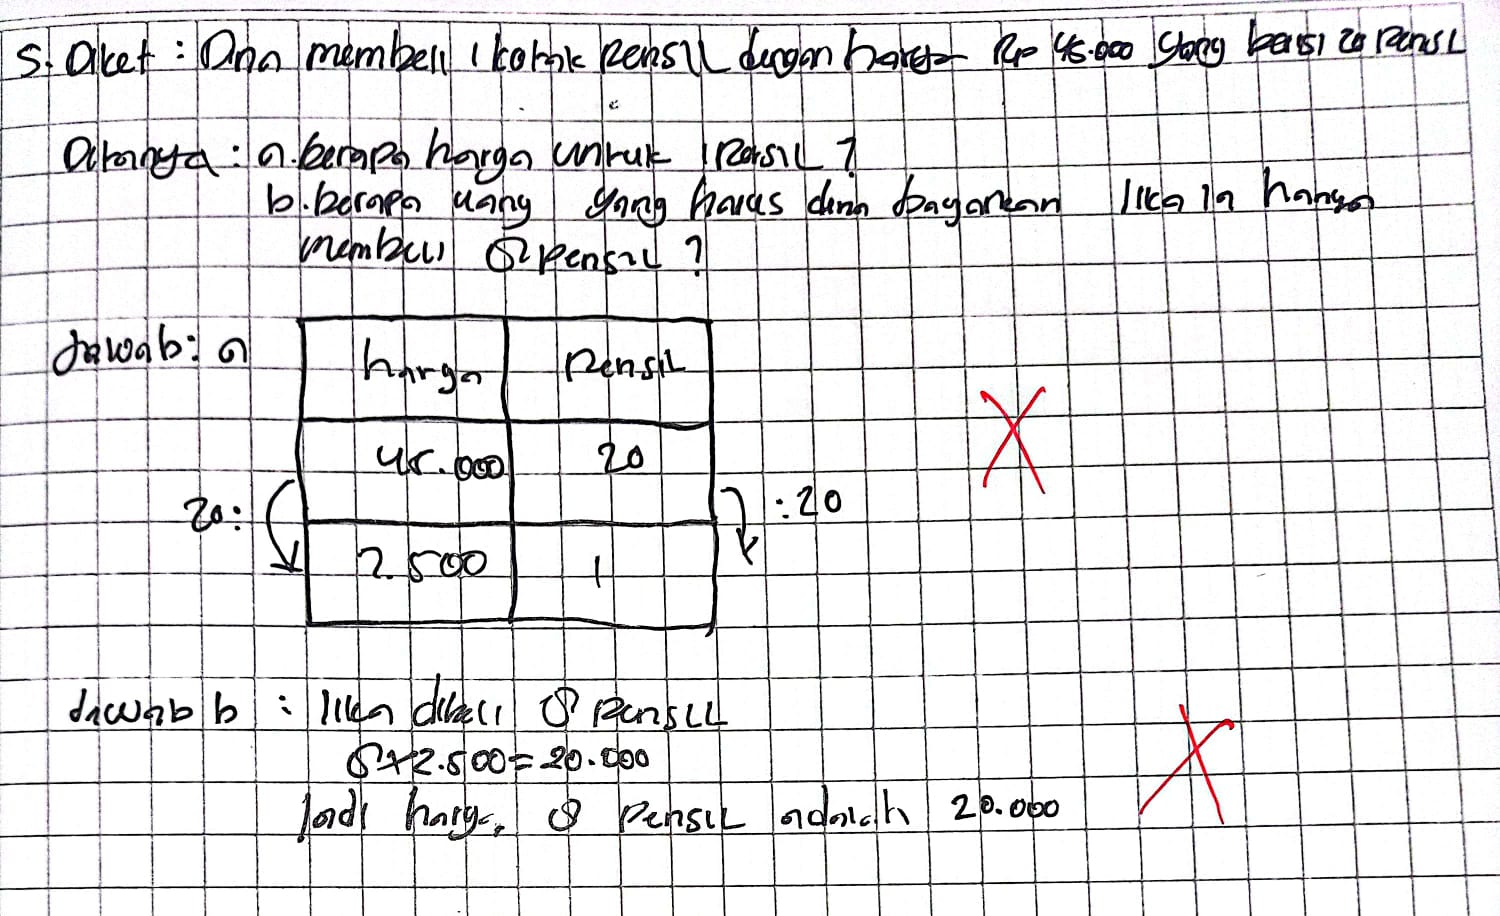 5. Diket : Dina membeli 1 kotak pensil dengan harga Rp 45.000 yang berisi 20 pensil
Ditanya : a. berapa harga untuk 1 pensil ?
b. berapa uang yang harus dina bayarkan jika ia hanya
membeli 8 pensil ?
Jawab : a
harga pensil
45.000 20
20: :20
2.500 1
Jawab b : jika dibeli 8 pensil
8 x 2.500 = 20.000
Jadi harga 8 pensil adalah 20.000